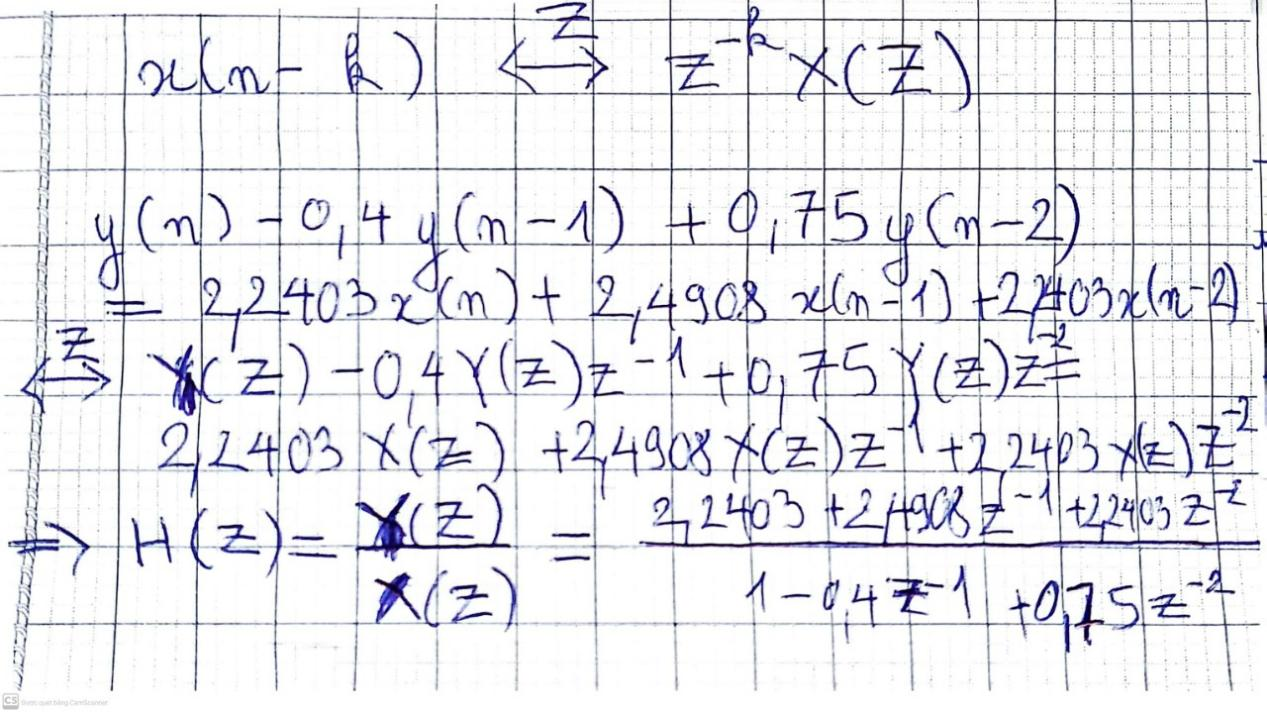 x(n-k) <-Z-> z^{-k} X(Z)
y(n) - 0,4y(n-1) + 0,75y(n-2)
= 2,2403x(n) + 2,4908 x(n-1) + 2,2403x(n-2)
<-Z-> Y(Z) - 0,4Y(Z)z^{-1} + 0,75Y(Z)z^{-2} =
2,2403 X(Z) + 2,4908 X(Z)z^{-1} + 2,2403 X(Z)z^{-2}
=> H(Z) = Y(Z)/X(Z) = (2,2403 + 2,4908z^{-1} + 2,2403z^{-2})/(1 - 0,4z^{-1} + 0,75z^{-2})
CS Được quét bằng CamScanner